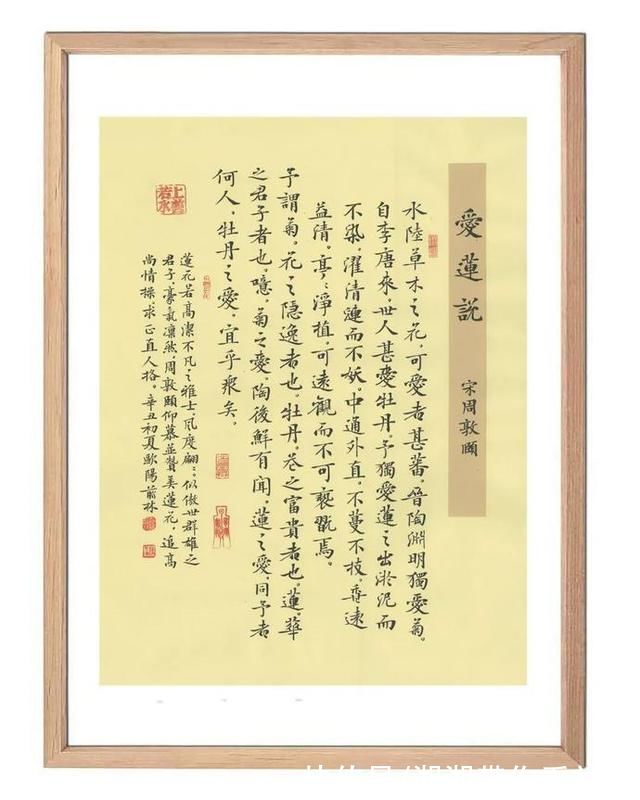 愛蓮説
宋周敦頤
水陸草木之花,可愛者甚蕃。晉陶淵明獨愛菊。
自李唐來,世人甚愛牡丹。予獨愛蓮之出淤泥而
不染,濯清漣而不妖。中通外直,不蔓不枝。香遠
益清,亭〻淨植,可遠觀而不可褻翫焉。
予謂菊。花之隱逸者也。牡丹。花之富貴者也。蓮。華
之君子者也。噫,菊之愛,陶後鮮有聞,蓮之愛,同予者
何人,牡丹之愛,宜乎衆矣。
上善若水
蓮花若高潔不凡之雅士,風度翩〻似傲世群雄之
君子,豪氣凛然,周敦頤仰慕並贊美蓮花,追高
尚情操求正直人格。辛丑初夏歐陽林